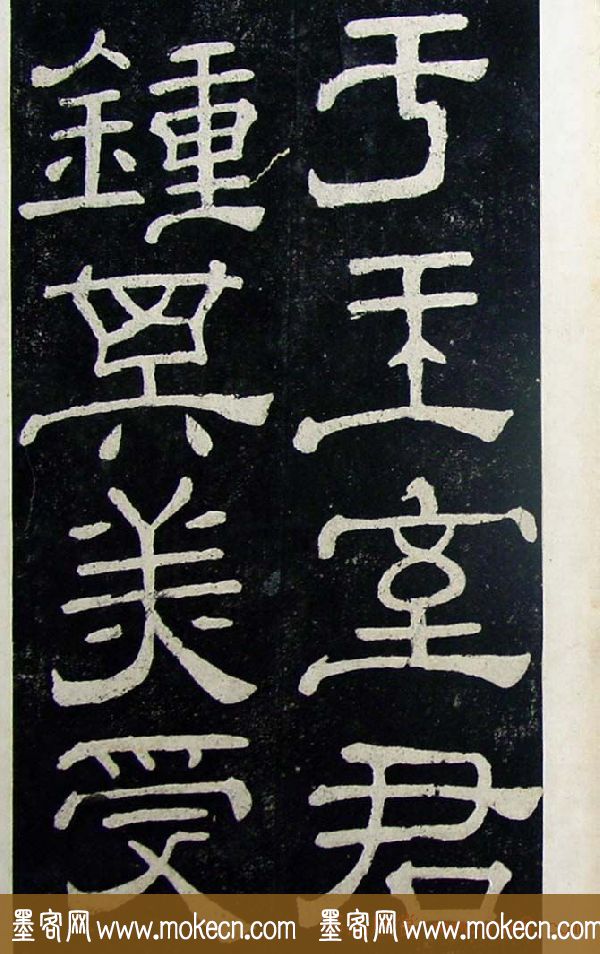 于王室君
鍾其美受
墨客网 www.mokecn.com 墨客网 www.mokecn.com